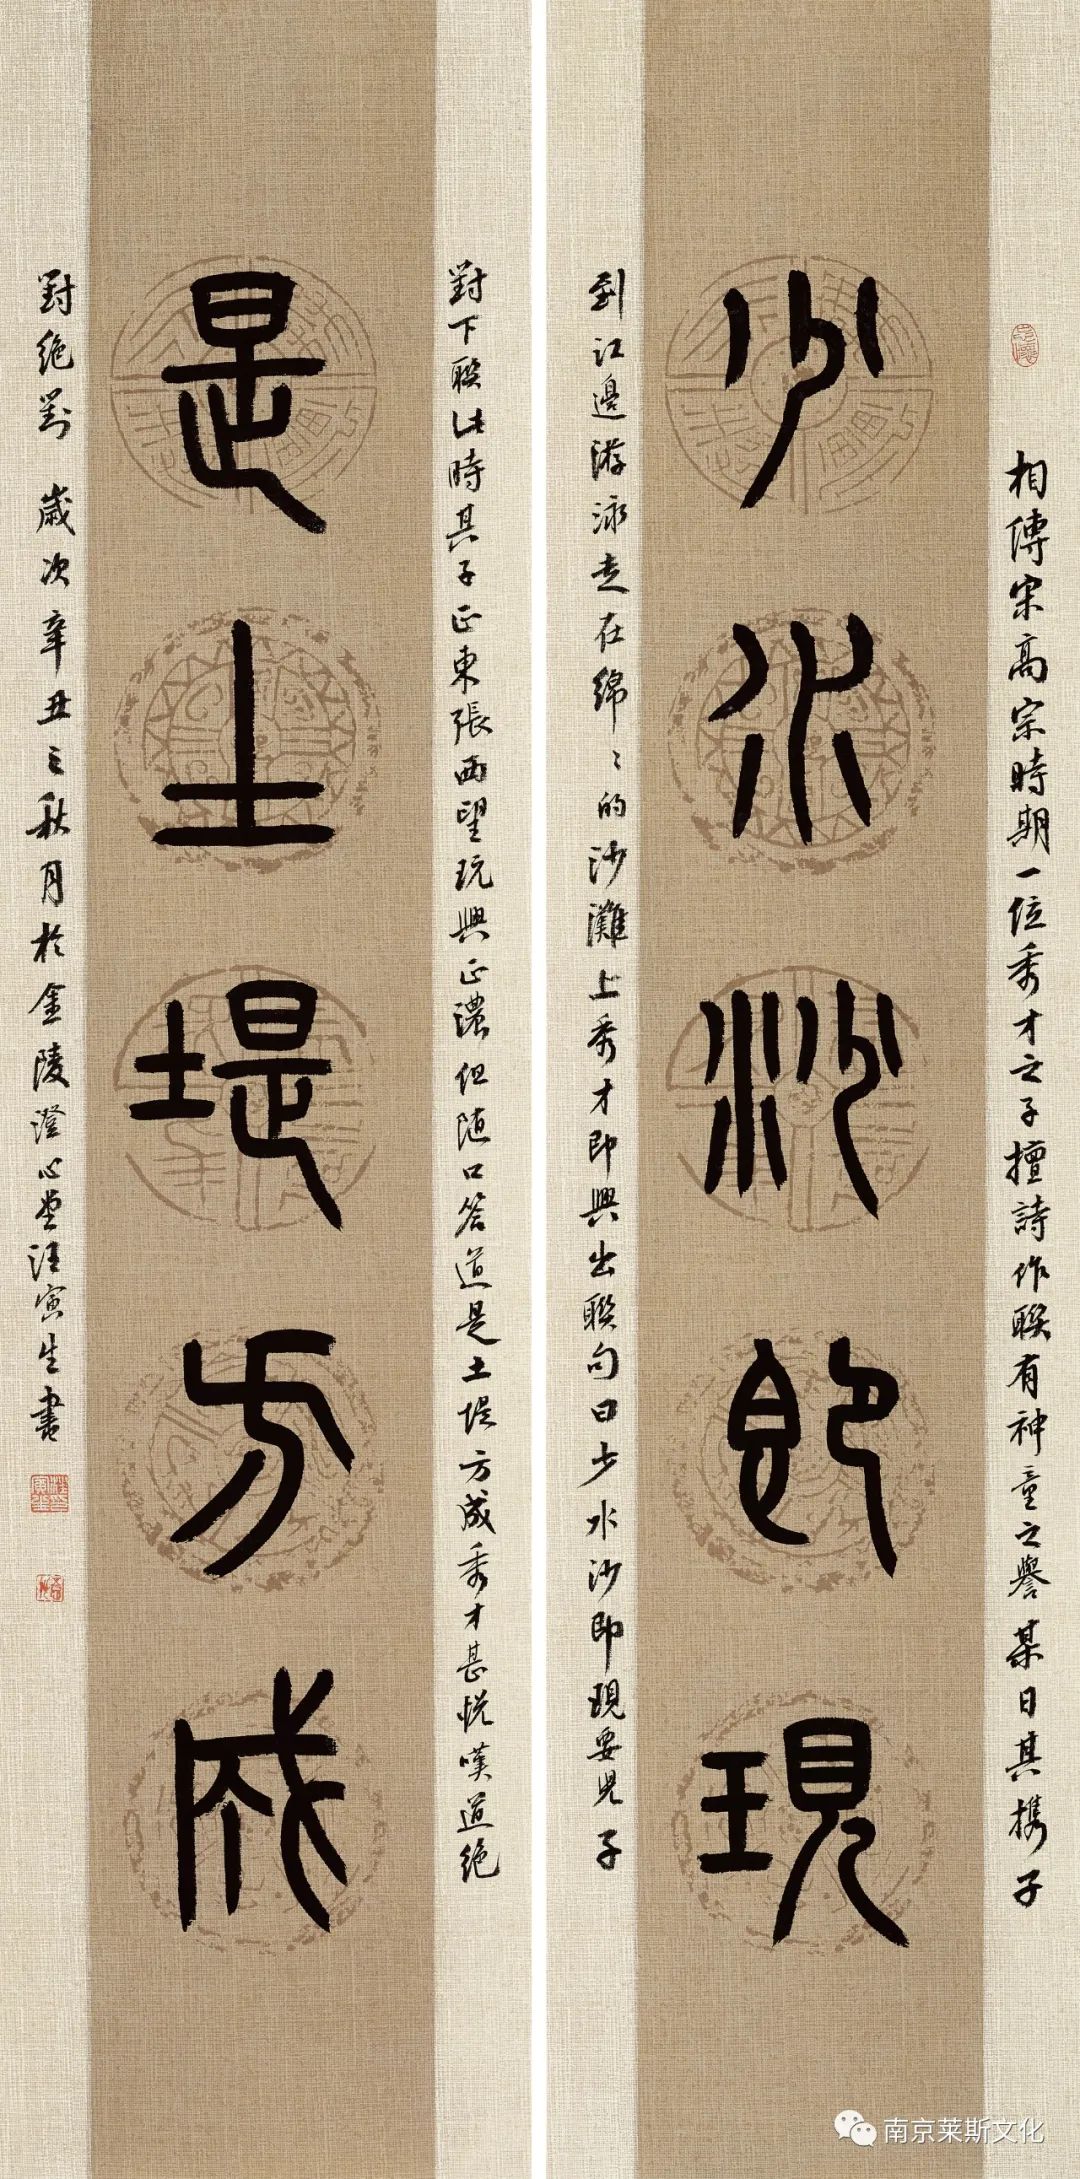 少水沙即現
是土堤方成
相傳宋高宗時期一位秀才之子擅詩作聯有神童之譽某日其携子
到江邊游泳走在綿〻的沙灘上秀才即興出聯句曰少水沙即現要兒子
對下聯此時其子正東張西望玩興正濃但随口答道是土堤方成秀才甚悦嘆道絶
對絶對 歲次辛丑之秋月於金陵澄心堂汪寅生書
南京莱斯文化